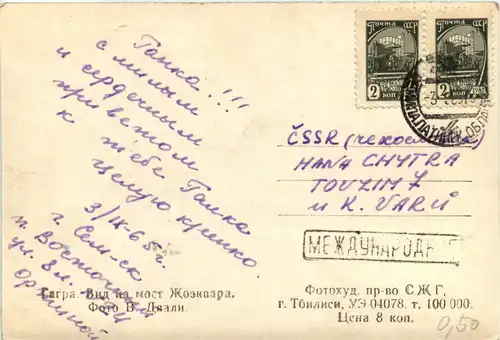 Ганка!!!
с милым
и сердечным
приветом
к тебе Ганка
целую крепко.
3/IX-65г.
г. Сем-ск
п. Восточный
ул. 8л.
ПОЧТА СССР
ПОЧТА СССР
2 КОП
2 КОП
ČSSR (чехословак
HANA CHYTRA
TOUŽIM 7
u K. VARŮ
МЕЖДУНАРОДНОЕ
Гагра. Вид на мост Жоэквара.
Фото В. Двали.
Фотохуд. пр-во С Ж Г,
г. Тбилиси, УЭ 04078. т. 100 000.
Цена 8 коп.
0,50